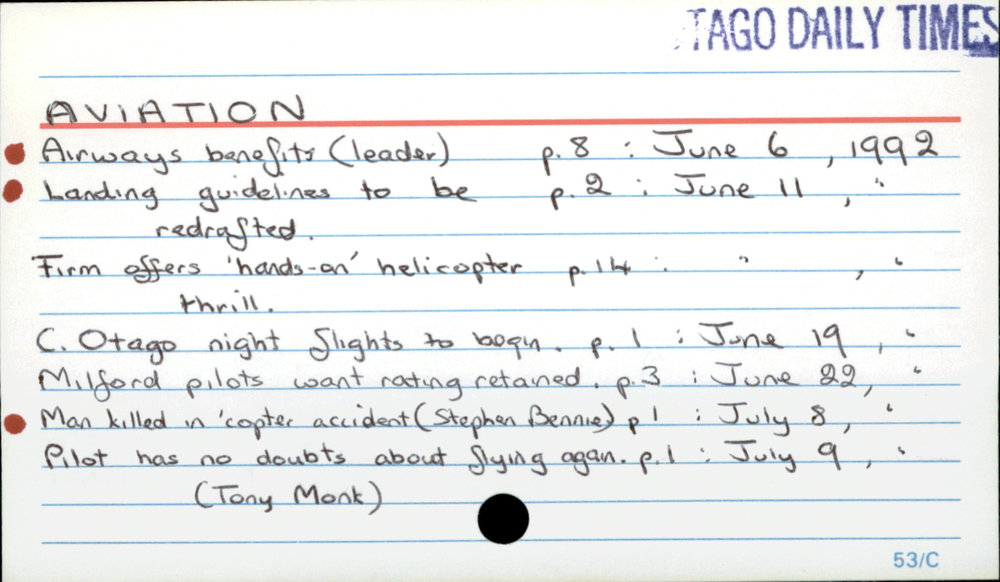 TAGO DAILY TIMES
AVIATION
Airways benefits (leader) p. 8 : June 6 , 1992
Landing guidelines to be p. 2 : June 11 , "
redrafted.
Firm offers 'hands-on' helicopter p. 14 : " , "
thrill.
C. Otago night flights to begin. p. 1 : June 19 , "
Milford pilots want rating retained. p. 3 : June 22, "
Man killed in 'copter accident (Stephen Bennie) p 1 : July 8, "
Pilot has no doubts about flying again. p. 1 : July 9 , "
(Tony Monk)
53/C